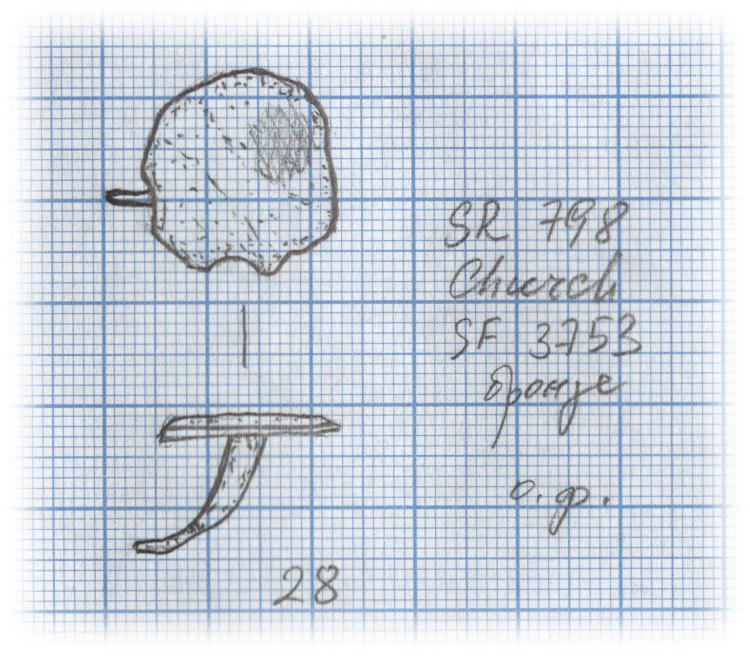 SR 798
Church
SF 3753
бронзе
28